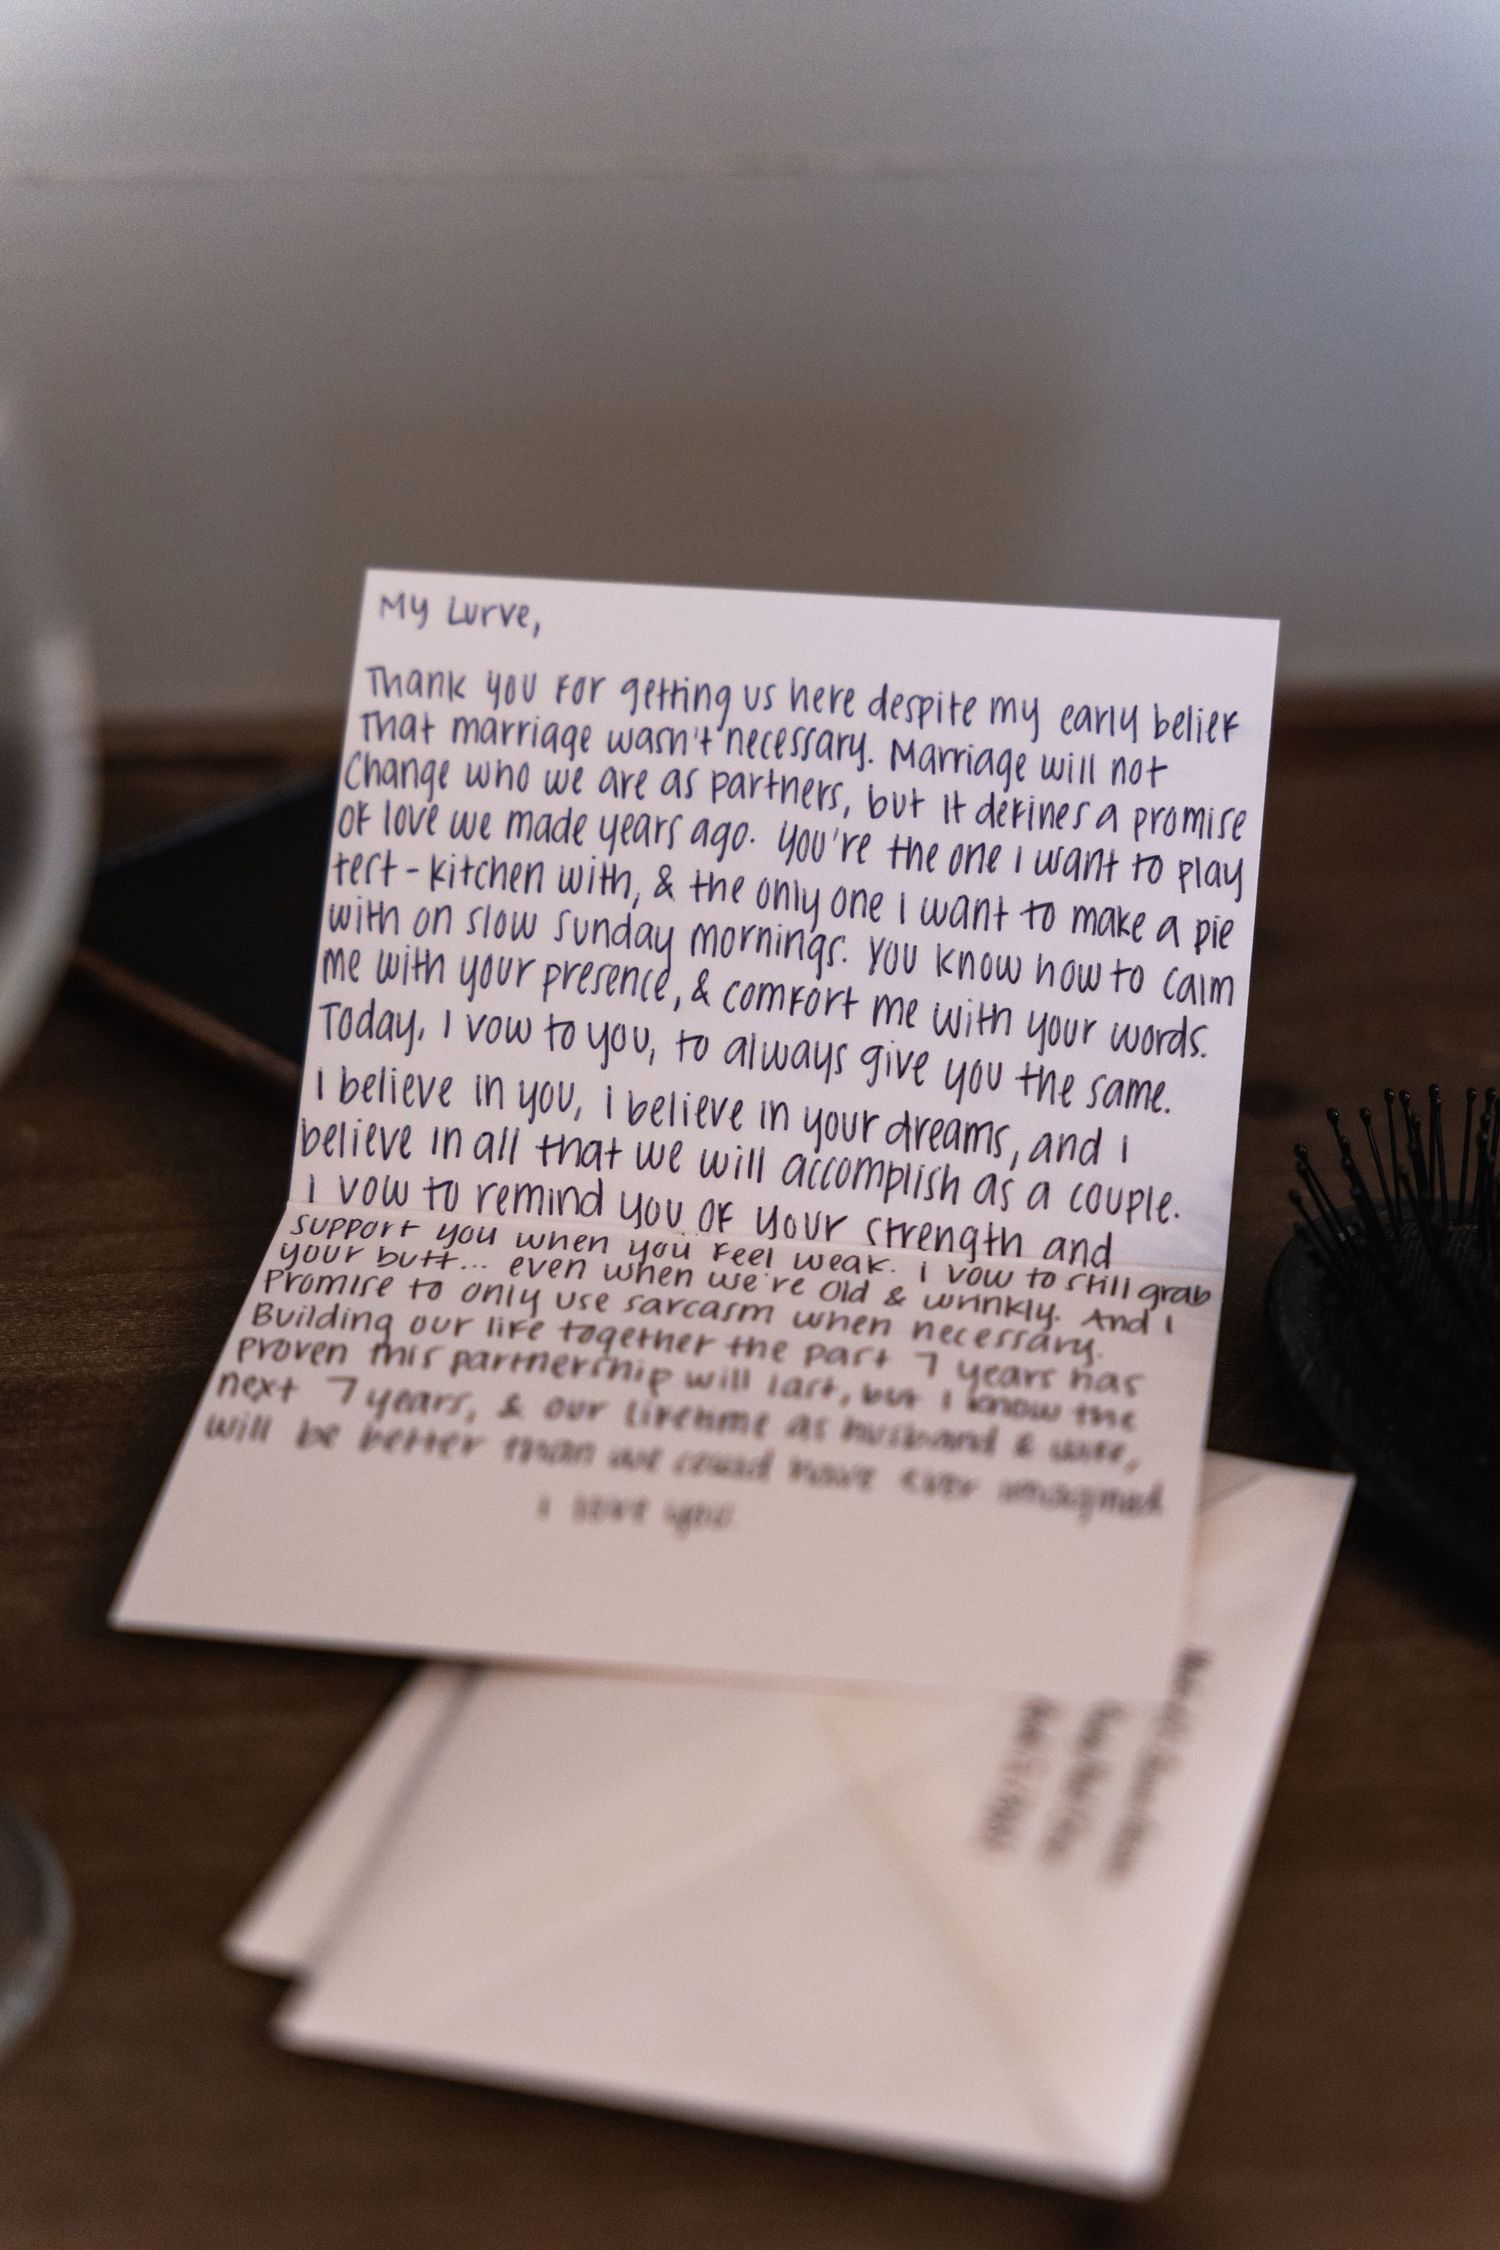 My Lurve,
Thank you for getting us here despite my early belief
that marriage wasn't necessary. Marriage will not
change who we are as partners, but it defines a promise
of love we made years ago. You're the one I want to play
test-kitchen with, & the only one I want to make a pie
with on slow Sunday mornings. You know how to calm
me with your presence, & comfort me with your words.
Today, I vow to you, to always give you the same.
I believe in you, I believe in your dreams, and I
believe in all that we will accomplish as a couple.
I vow to remind you of your strength and
support you when you feel weak. I vow to still grab
your butt... even when we're old & wrinkly. And I
promise to only use sarcasm when necessary.
Building our life together the past 7 years has
proven this partnership will last, but I know the
next 7 years, & our lifetime as husband & wife,
will be better than we could have ever imagined
I love you.